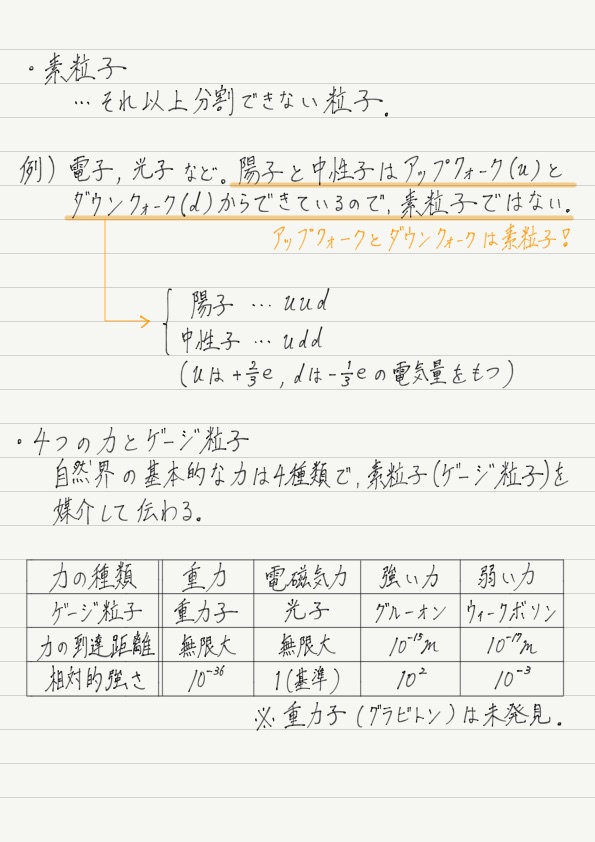 ・素粒子
… それ以上分割できない粒子.
例) 電子, 光子 など。陽子と中性子はアップクォーク(u)と
ダウンクォーク(d)からできているので, 素粒子ではない.
アップクォークとダウンクォークは素粒子!
陽子 … uud
中性子 … udd
(uは+2/3e, dは-1/3eの電気量をもつ)
・4つの力とゲージ粒子
自然界の基本的な力は4種類で, 素粒子(ゲージ粒子)を
媒介して伝わる。
力の種類 重力 電磁気力 強い力 弱い力
ゲージ粒子 重力子 光子 グルーオン ウィークボソン
力の到達距離 無限大 無限大 10⁻¹⁵m 10⁻¹⁷m
相対的強さ 10⁻³⁶ 1(基準) 10² 10⁻³
※重力子(グラビトン)は未発見.